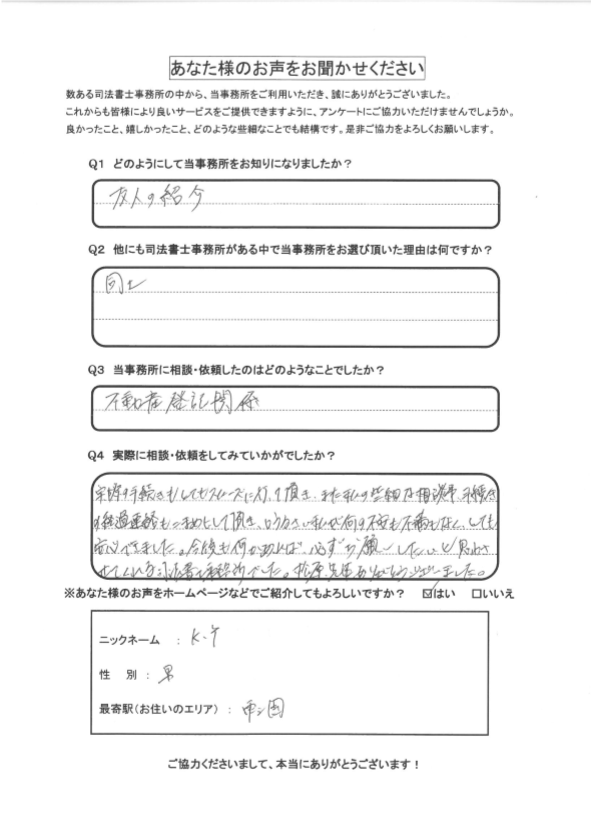 あなた様のお声をお聞かせください
数ある司法書士事務所の中から、当事務所をご利用いただき、誠にありがとうございました。
これからも皆様により良いサービスをご提供できますように、アンケートにご協力いただけませんでしょうか。
良かったこと、嬉しかったこと、どのような些細なことでも結構です。是非ご協力をよろしくお願いします。
Q1 どのようにして当事務所をお知りになりましたか？
友人の紹介
Q2 他にも司法書士事務所がある中で当事務所をお選び頂いた理由は何ですか？
同上
Q3 当事務所に相談・依頼したのはどのようなことでしたか？
不動産登記関係
Q4 実際に相談・依頼をしてみていかがでしたか？
実際の手続きもとてもスムーズに行って頂き、また私の些細な相談事、手続き
の経過連絡もつめとして頂き、私が何の不安も不満もなく、とても
安心できました。今後も何かあれば、必ずお願いしたいと思わさ
せてくれる司法書士事務所でした。松原先生ありがとうございました。
※あなた様のお声をホームページなどでご紹介してもよろしいですか？ ☑はい □いいえ
ニックネーム ： K・Y
性 別 ： 男
最寄駅（お住いのエリア） ：
ご協力くださいまして、本当にありがとうございます！